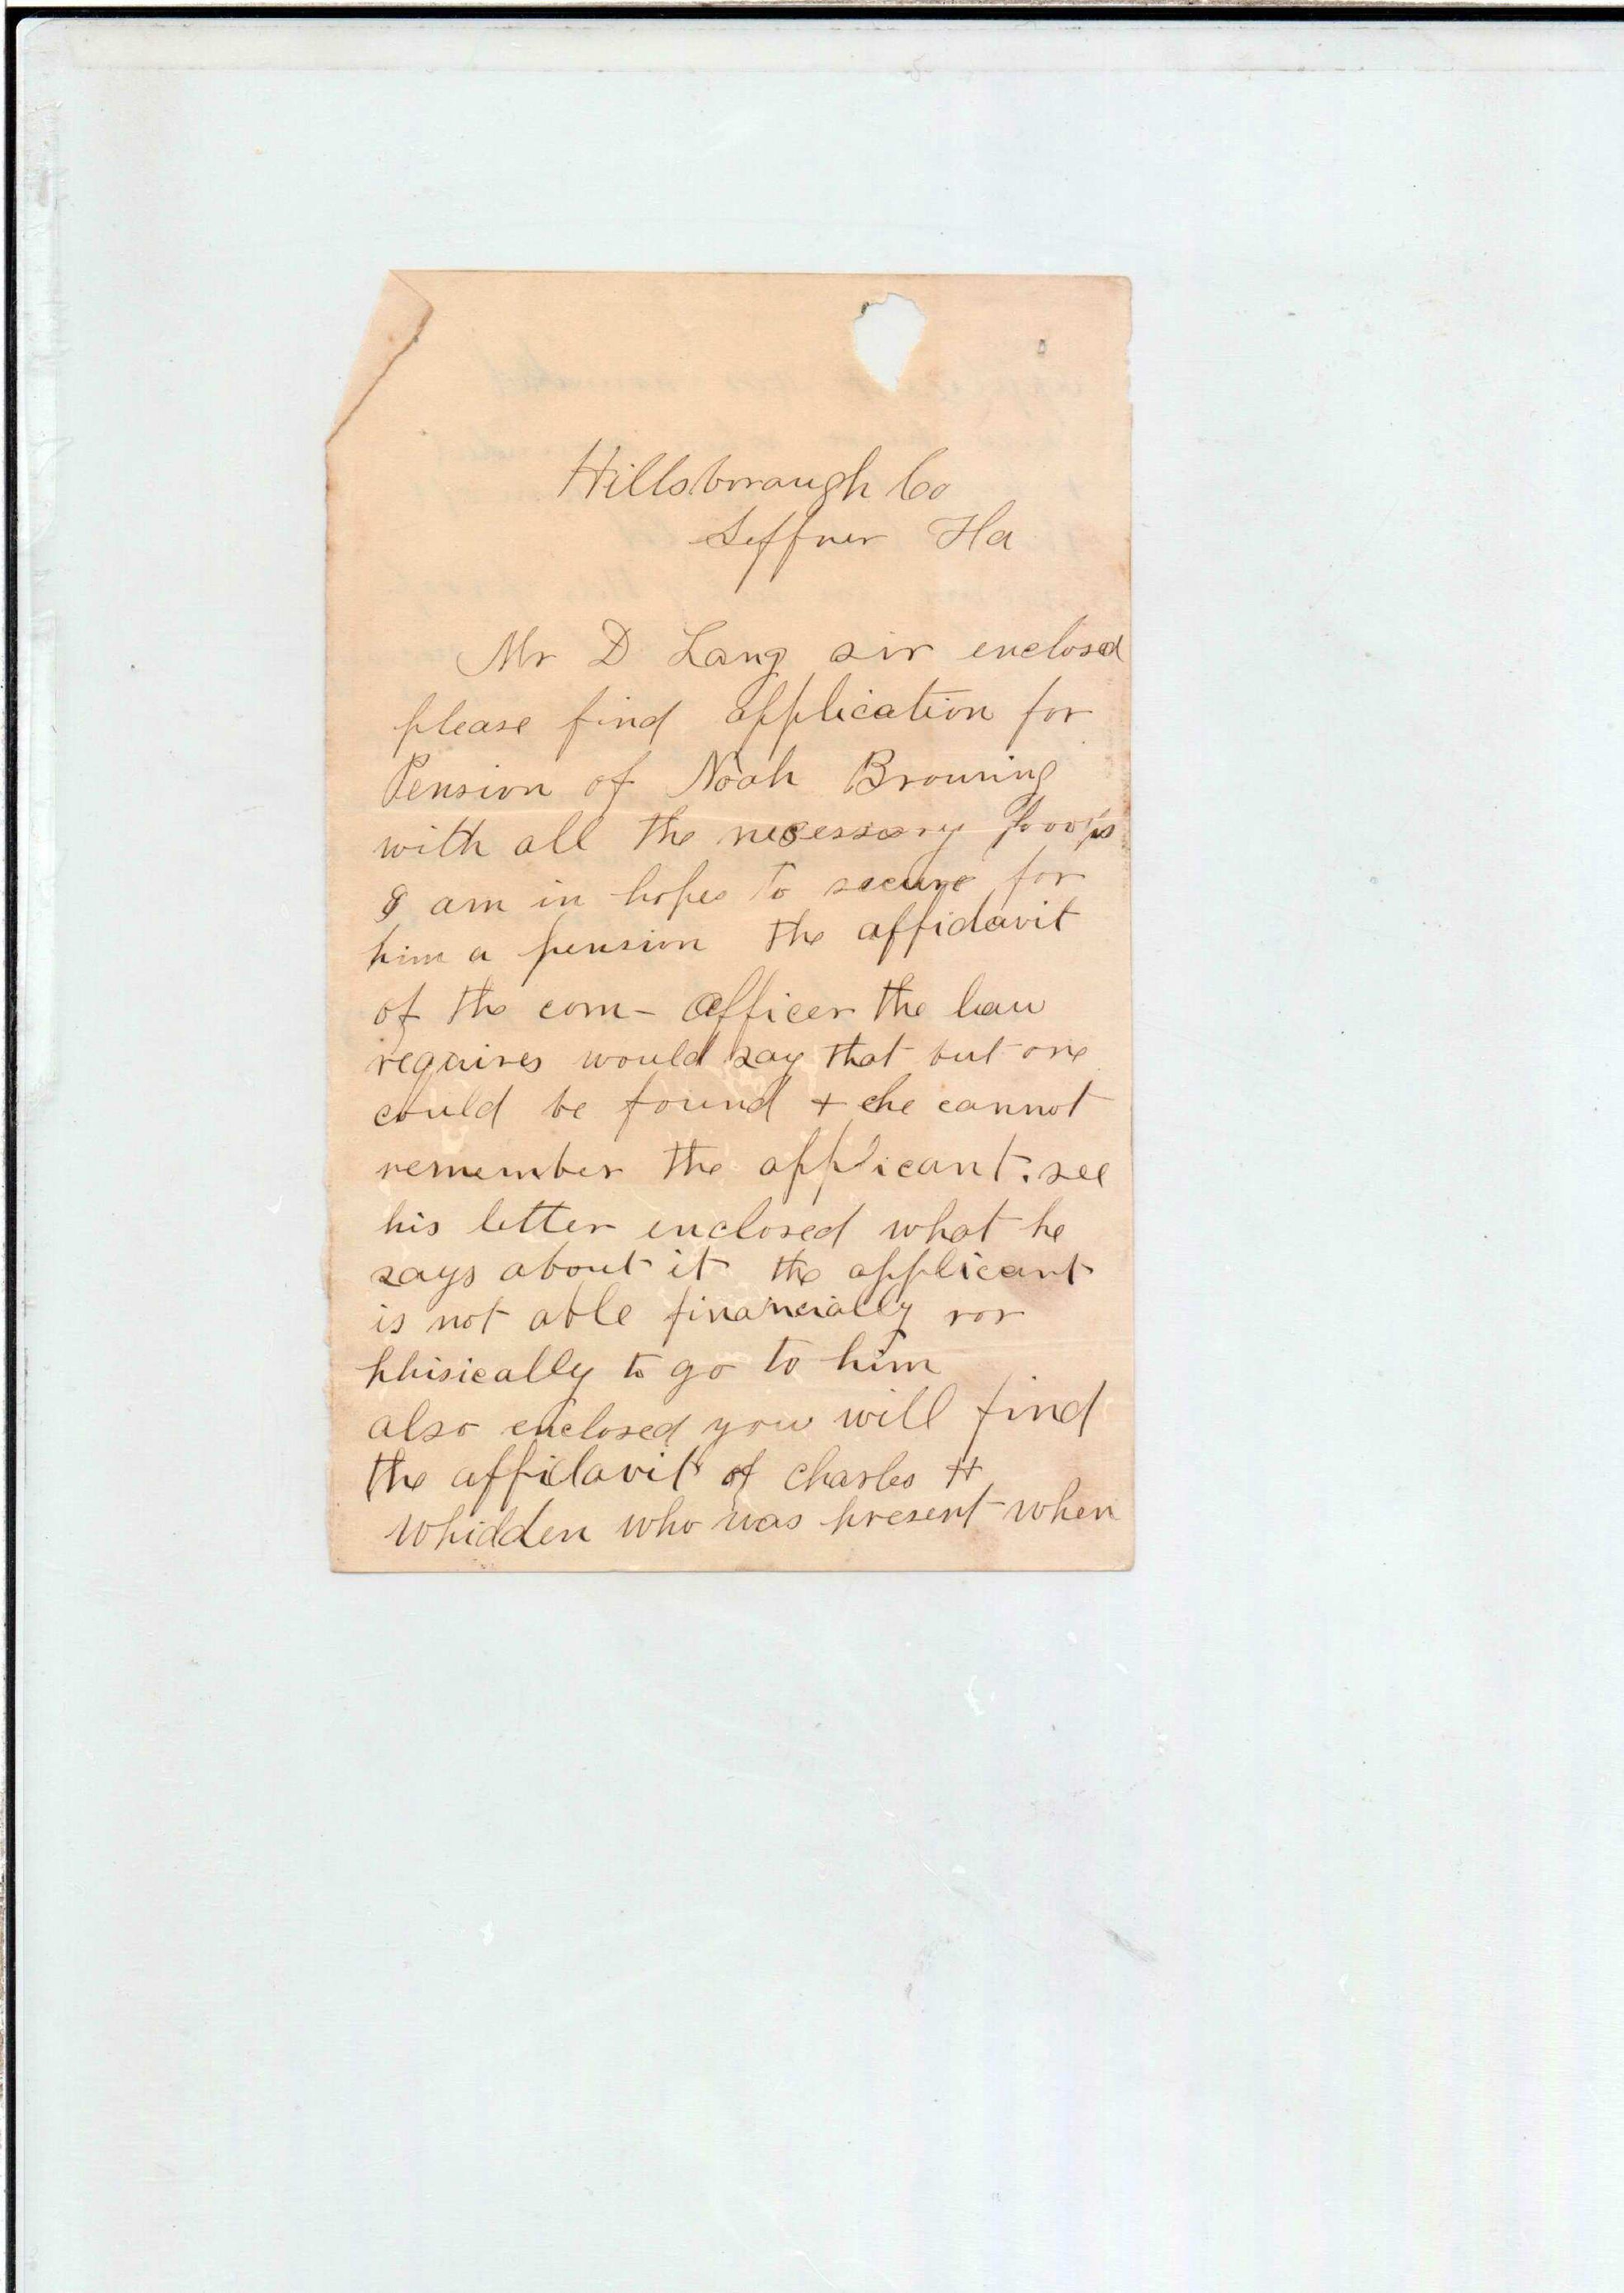 Hillsborough Co
Seffner Fla
Mr D Lang sir enclosed
please find application for
Pension of Noah Browning
with all the necessary proofs
I am in hopes to secure for
him a pension the affidavit
of the com- officer the law
requires would say that but one
could be found + he cannot
remember the applicant. see
his letter enclosed what he
says about it the applicant
is not able financially nor
phisically to go to him
also enclosed you will find
the affidavit of Charles H
Whidden who was present when